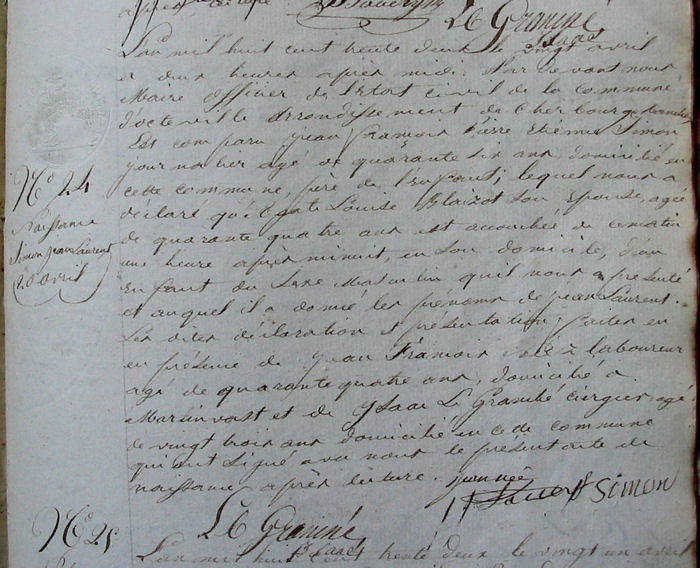 après lecture
Le Graniné
Isaac
L'an mil huit cent trente deux le vingt avril
a deux heures après midi. Par Devant nous
Maire officier de l'Etat civil de la commune
d'octeville arrondissement de Cherbourg
Est comparu Jean François Pierre Etienne Simon
journalier agé de quarante six ans, domicilié en
cette commune, père de l'Enfant, lequel nous a
déclaré qu'Agate Louise Blaizot son Epouse, agée
de quarante quatre ans est accouchée de ce matin
une heure après minuit, en son domicile, d'un
Enfant du Sexe Masculin, qu'il nous a présenté
et auquel il a donné les prénoms de jean Laurent.
Les dites déclaration et présentation, faites en
en présence de jean François laboureur
agé de quarante quatre ans, domicilié a
Martinvast et de Ysaac Le Graniné cierger, agé
de vingt trois ans domicilié en ce de commune
qui ont signé avec nous le présent acte de
naissance après lecture.
Simon
Le Graniné
Isaac
N° 24
Naissance
Simon jean Laurent
20 avril
N° 25
L'an mil huit cent trente deux le vingt un avril